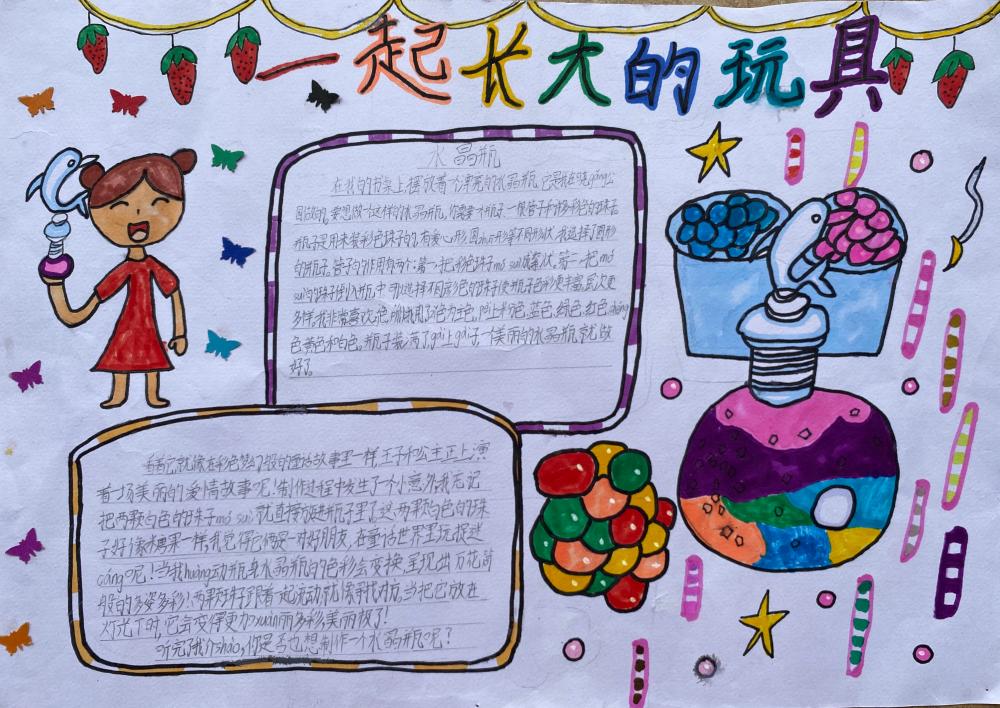 一起长大的玩具
水晶瓶
在我的书桌上，摆放着一个漂亮的水晶瓶，它是我在晓gǎng公
园做的。要想做一个这样的水晶瓶，你需要一个瓶子、一根管子和许多彩色的珠子。
瓶子是用来装彩色珠子的，有爱心形、圆zhuī形等不同形状，我选择了圆形
的瓶子。管子的作用有两个：第一，把彩色珠子mó suì成雾状。第二，把mó
suì的珠子倒入瓶中。可以选择不同彩色的珠子使瓶子色彩更丰富，层次更
多样。我非常喜欢 色，所以我用了 色为主色，加上粉色、蓝色、绿色、红色、chéng
色、黄色和白色。瓶子装满了，gài上gài子，一个美丽的水晶瓶就做
好了。
看着它，就像在彩色梦幻般的童话故事里一样，王子和公主正上演
着一场美丽的爱情故事呢！制作过程中发生了个小意外，我忘记
把两颗白色的珠子mó suì，就直接放进瓶子里了。这两颗白色的珠
子好像糖果一样，我觉得它俩是一对好朋友，在童话世界里玩捉迷
cáng呢！当我huàng动瓶身，水晶瓶的色彩会变换，呈现出万花筒
般的多姿多彩，两颗珠子跟着一起流动，就像寻找对方。当把它放在
灯光下时，它会变得更加xuàn丽多彩，美丽极了！
听完了我介shào，你是否也想制作一个水晶瓶呢？